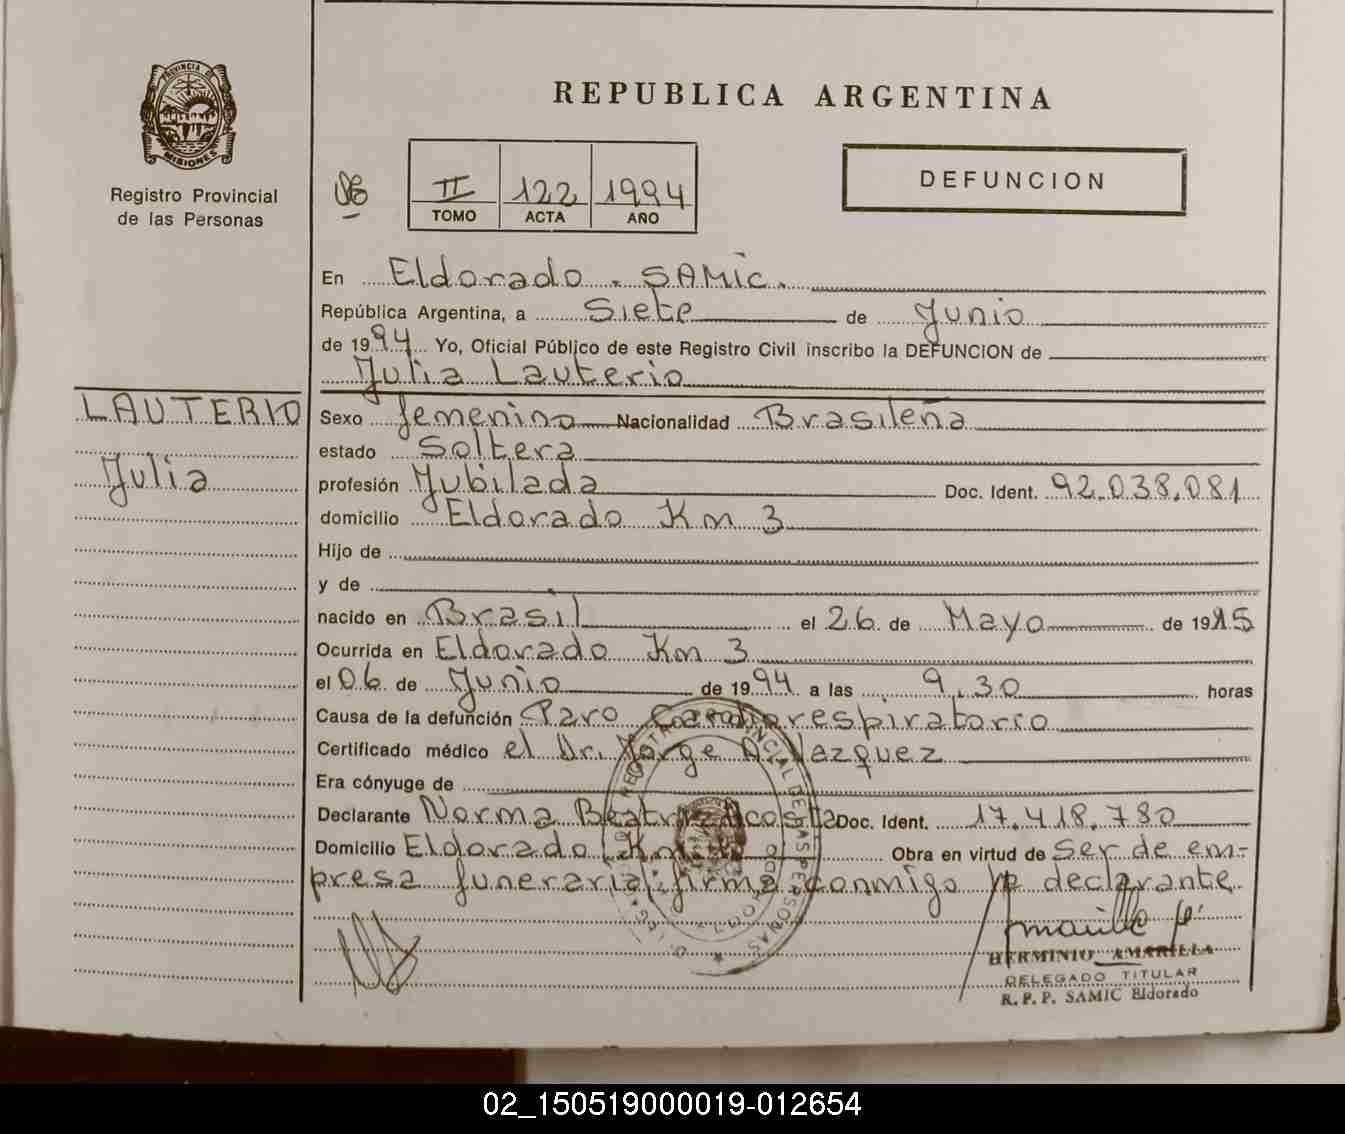 PROVINCIA DE
MISIONES
Registro Provincial
de las Personas
REPUBLICA ARGENTINA
II 122 1994
TOMO ACTA AÑO
DEFUNCION
En Eldorado. SAMIC.
República Argentina, a Siete de Junio
de 1994 Yo, Oficial Público de este Registro Civil inscribo la DEFUNCION de
Julia Lauterio
LAUTERIO
Julia
Sexo femenino Nacionalidad Brasileña
estado Soltera
profesión Jubilada Doc. Ident. 92.038.081
domicilio Eldorado Km 3
Hijo de
y de
nacido en Brasil el 26 de Mayo de 1915
Ocurrida en Eldorado Km 3
el 06 de Junio de 1994 a las 9,30 horas
Causa de la defunción Paro Cardiorespiratorio
Certificado médico el Dr. Jorge A. Vazquez
Era cónyuge de
Declarante Norma Beatriz Acosta Doc. Ident. 17.418.780
Domicilio Eldorado Km Obra en virtud de Ser de em-
presa funeraria; firma conmigo declarante
HERMINIO AMARILLA
DELEGADO TITULAR
R. P. P. SAMIC Eldorado
02_150519000019-012654